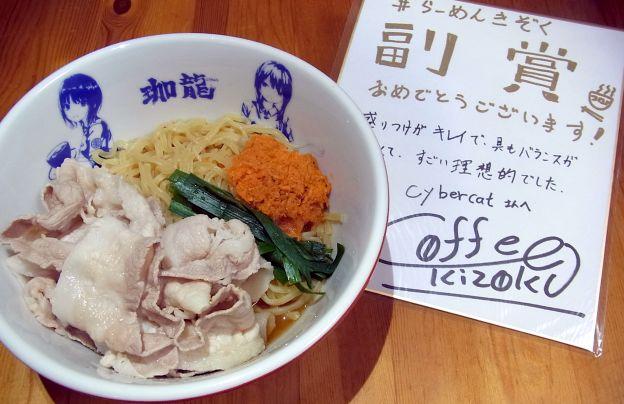 珈龍
#らーめんきぞく
副賞
おめでとうございます!
盛りつけがキレイで、具もバランスが
て、すごい理想的でした。
cybercat さんへ
Coffee
KIZOKU